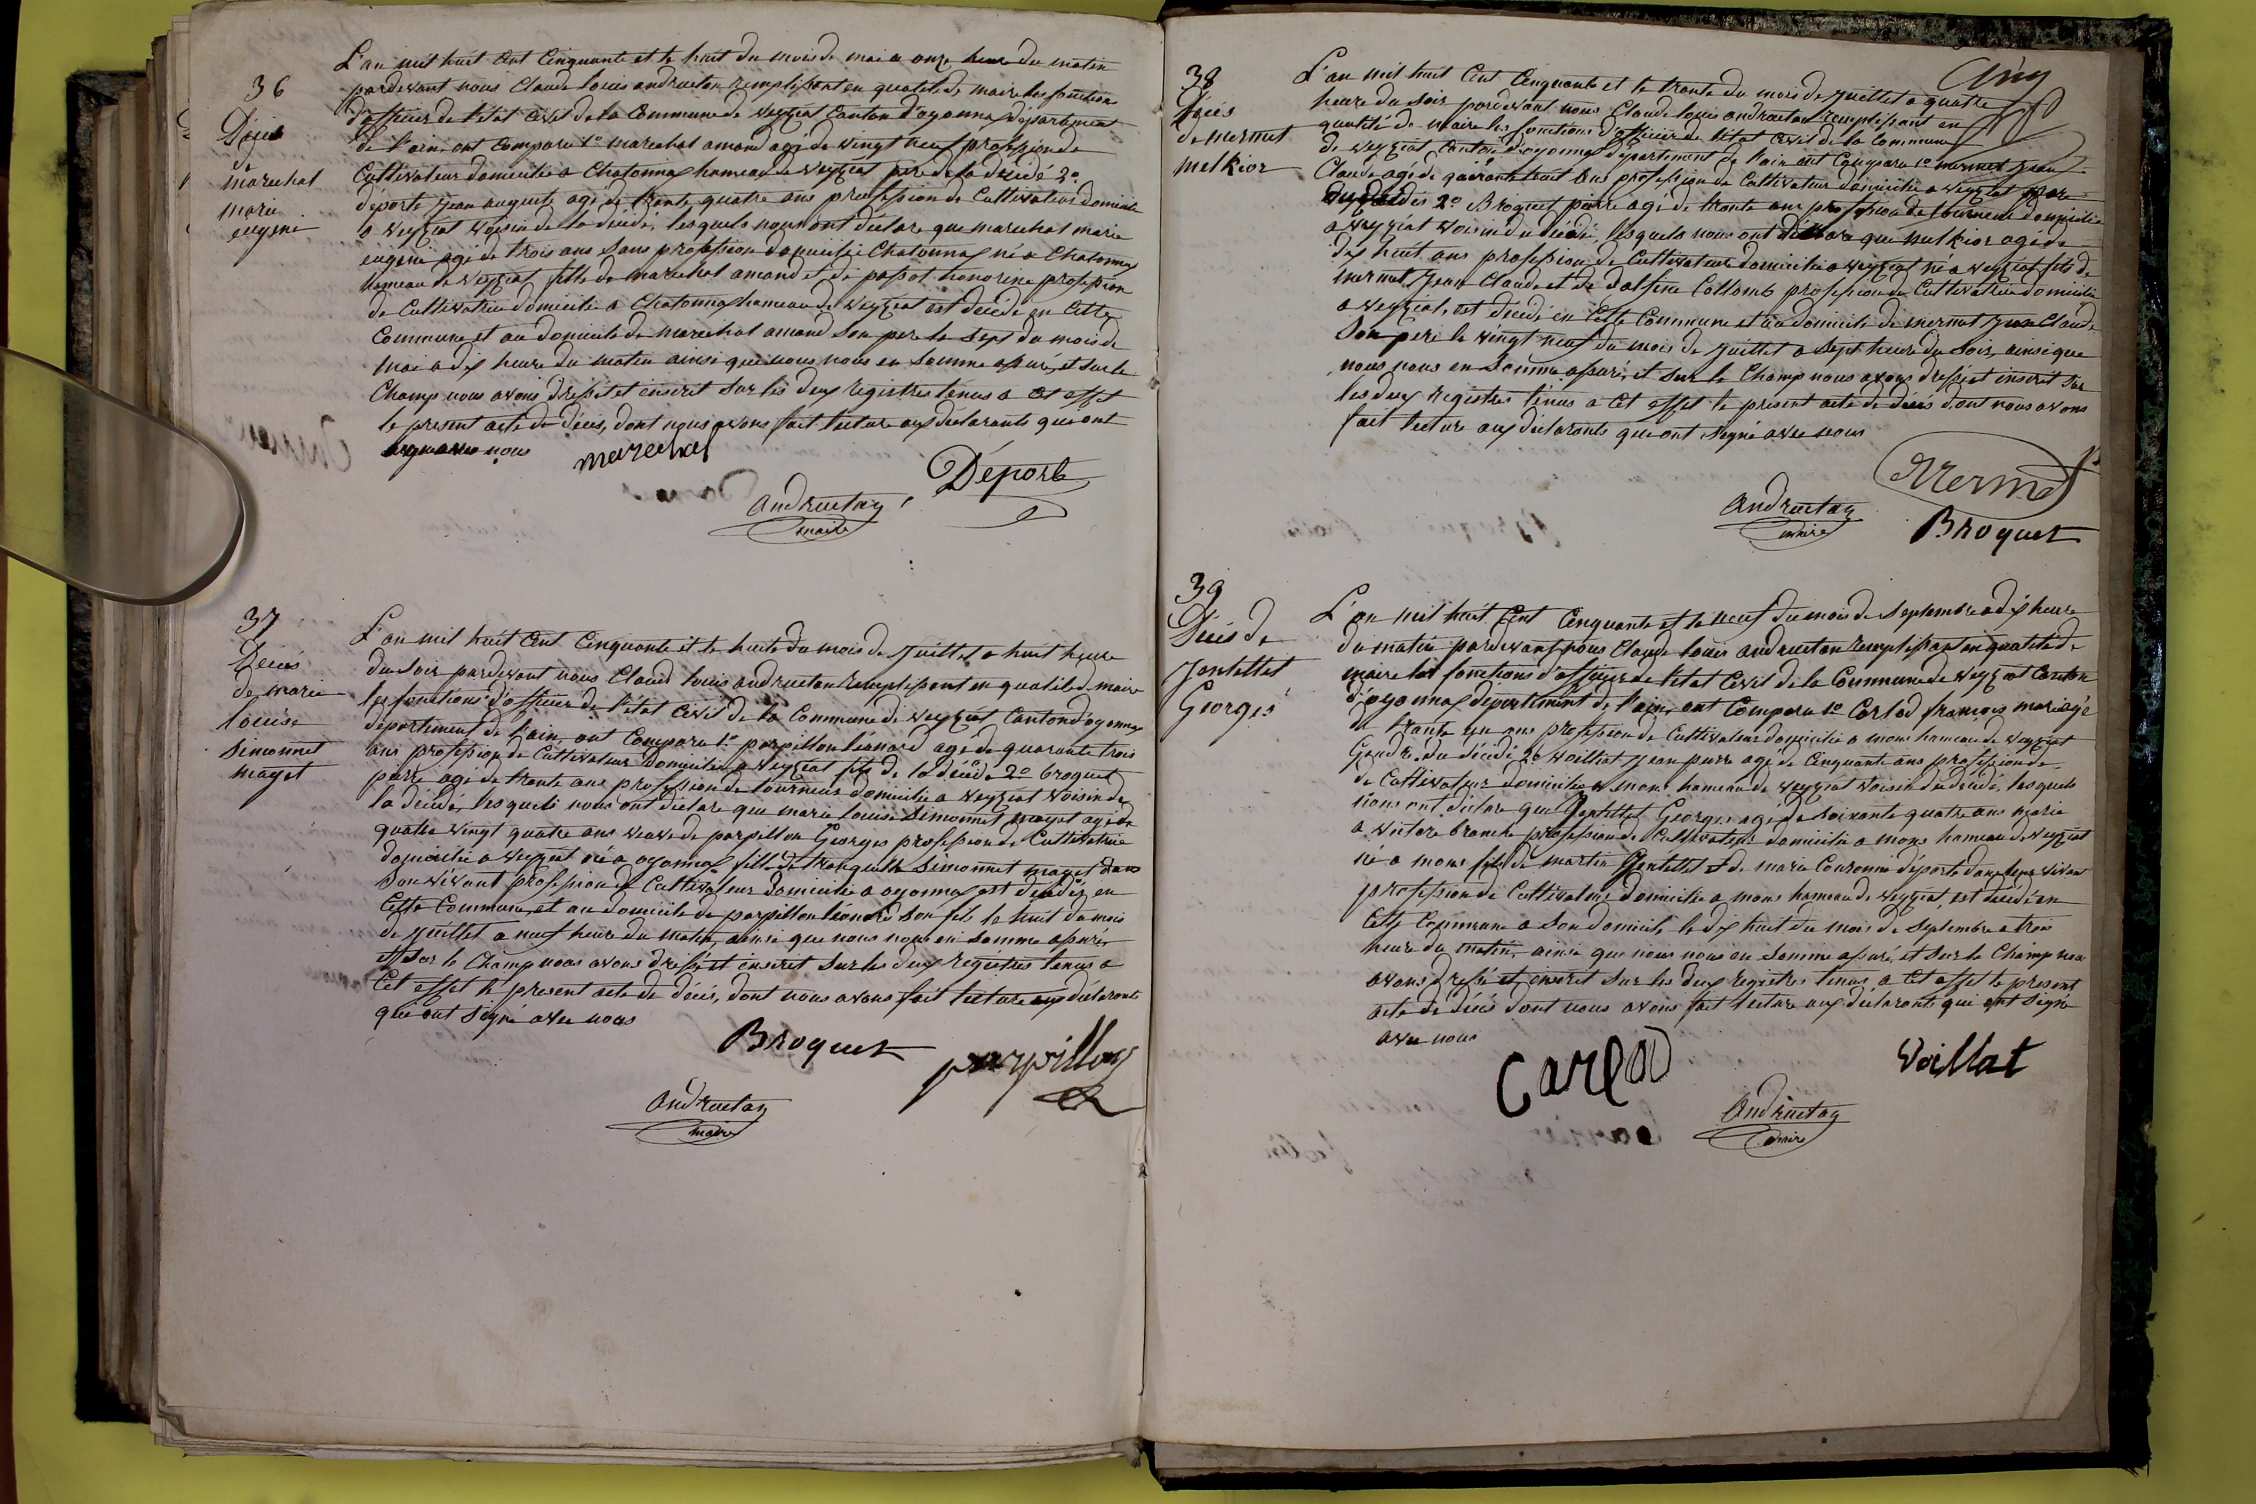 36
Décès
de
marechal
marie
eugenie
L'an mil huit cent cinquante et le huit du mois de mai a onze heure du matin
pardevant nous Claude louis andruetan remplissant en qualité de maire les fonction
d'officier de l'état civil de la Commune de veyziat Canton d'oyonnax département
de l'ain, ont comparu 1o marechal amand agé de vingt neuf profession de
Cultivateur domicilié a Chatonnax hameau de veyziat pere de la décédé 2o
déporte jean auguste agé de trente quatre ans profession de Cultivateur domicilié
a veyziat voisin de la décédé, lesquels nous ont déclare que marechal marie
eugenie agé de trois ans sans profession domiciliée Chatonnax né a Chatonnax
hameau de veyziat fille de marechal amand et de passot honorine profession
de Cultivatrice domicilié a Chatonnax hameau de veyziat est décédé en cette
Commune et au domicile de marechal amand son pere le sept du mois de
mai a dix heure du matin ainsi que nous nous en somme assuré, et sur le
Champ nous avons dressé et inscrit sur les deux registres tenus a cet effet
le present acte de décès, dont nous avons fait lecture aux déclarants qui ont
signé avec nous
marechal
Déporte
andruetan
maire
37
Décès
de marie
louise
simonnet
mayet
L'an mil huit cent cinquante et le huite du mois de juillet a huit heure
du soir pardevant nous Claud louis andruetan remplissant en qualité d. maire
les fonctions d'officier de l'état civil de la Commune de veyziat, Canton d'oyonnax
département de l'ain, ont comparu 1o parpillon léonard agé de quarante trois
ans profession de Cultivateur domicilié a veyziat fils de la décédé 2o broquet
pierre agé de trente ans profession de tourneur domicilié a veyziat voisin de
la décédé, lesquels nous ont déclare que marie louise simonnet mayet agé de
quatre vingt quatre ans veuve de parpillon Georges profession de Cultivatrice
domiciliée a veyziat né a oyonnax fille de tranquille simonnet mayet dans
son vivant profession de Cultivateur domicilié a oyonnax est décédés en
cette Commune, et au domicile de parpillon léonard son fils le huit du mois
de juillet a neuf heure du matin, ainsi que nous nous en somme assuré,
et sur le Champ nous avons dressé et inscrit sur les deux registres tenus a
cet effet le present acte de décès, dont nous avons fait lecture aux déclarants
qui ont signé avec nous
Broquet
parpillon
andruetan
maire
38
Décès
de mermet
melkior
L'an mil huit cent cinquante et le trente du mois de juillet a quatre
heure du soir pardevant nous Claude louis andruetan remplissant en
qualité de maire les fonctions d'officier de l'état civil de la Commune
de veyziat, Canton d'oyonnax département de l'ain ont Comparu 1o mermet jean
Claude agé de quarante huit ans profession de Cultivateur domicilié a veyziat pere
2o Broquet pierre agé de trente ans profession de tourneur domicilié
a veyziat voisin du décédé, lesquels nous ont déclare que melkior agé de
dix huit ans profession de Cultivateur domicilié a veyziat né a veyziat fils de
mermet Jean Claude et de dalfine Collomb profession de Cultivatrice domicilié
a veyziat, est décédé en cette Commune et au domicile de mermet jean Claude
son pere le vingt neuf du mois de juillet a sept heure du soir, ainsi que
nous nous en somme assuré, et sur le Champ nous avons dressé et inscrit sur
les deux registres tenus a cet effet le present acte de décès dont nous avons
fait lecture aux déclarants qui ont signé avec nous
Mermet
andruetan
maire
Broquet
39
Décès de
Jantellet
Georges
L'an mil huit cent cinquante et le neuf du mois de septembre a dix heure
du matin pardevant nous Claude louis andruetan remplissant en qualité de
maire les fonctions d'officier de l'état civil de la Commune de veyziat Canton
d'oyonnax département de l'ain, ont Comparu 1o Carlod françois marie agé
de trente un ans profession de Cultivateur domicilié a mons hameau de veyziat
Gendre du décédé 2o voilliat jean pierre agé de Cinquante ans profession de
de Cultivateur domicilié a mons hameau de veyziat voisin du décédé, lesquels
nous ont déclare que Jantellet Georges agé de soixante quatre ans marie
a victore branche profession de Cultivateur domicilié a mons hameau de veyziat
né a mons fils de martin Jantellet et de marie Couronne déporte dans leur vivant
profession de Cultivateur domicilié a mons hameau de veyziat, est décédé en
cette Commune a son domicile le dix huit du mois de septembre a trois
heure du matin, ainsi que nous nous en somme assuré, et sur le Champ nous
avons dressé et inscrit sur les deux registres tenus a cet effet le present
acte de décès dont nous avons fait lecture aux déclarants qui ont signé
avec nous
Carlod
Voillat
andruetan
maire